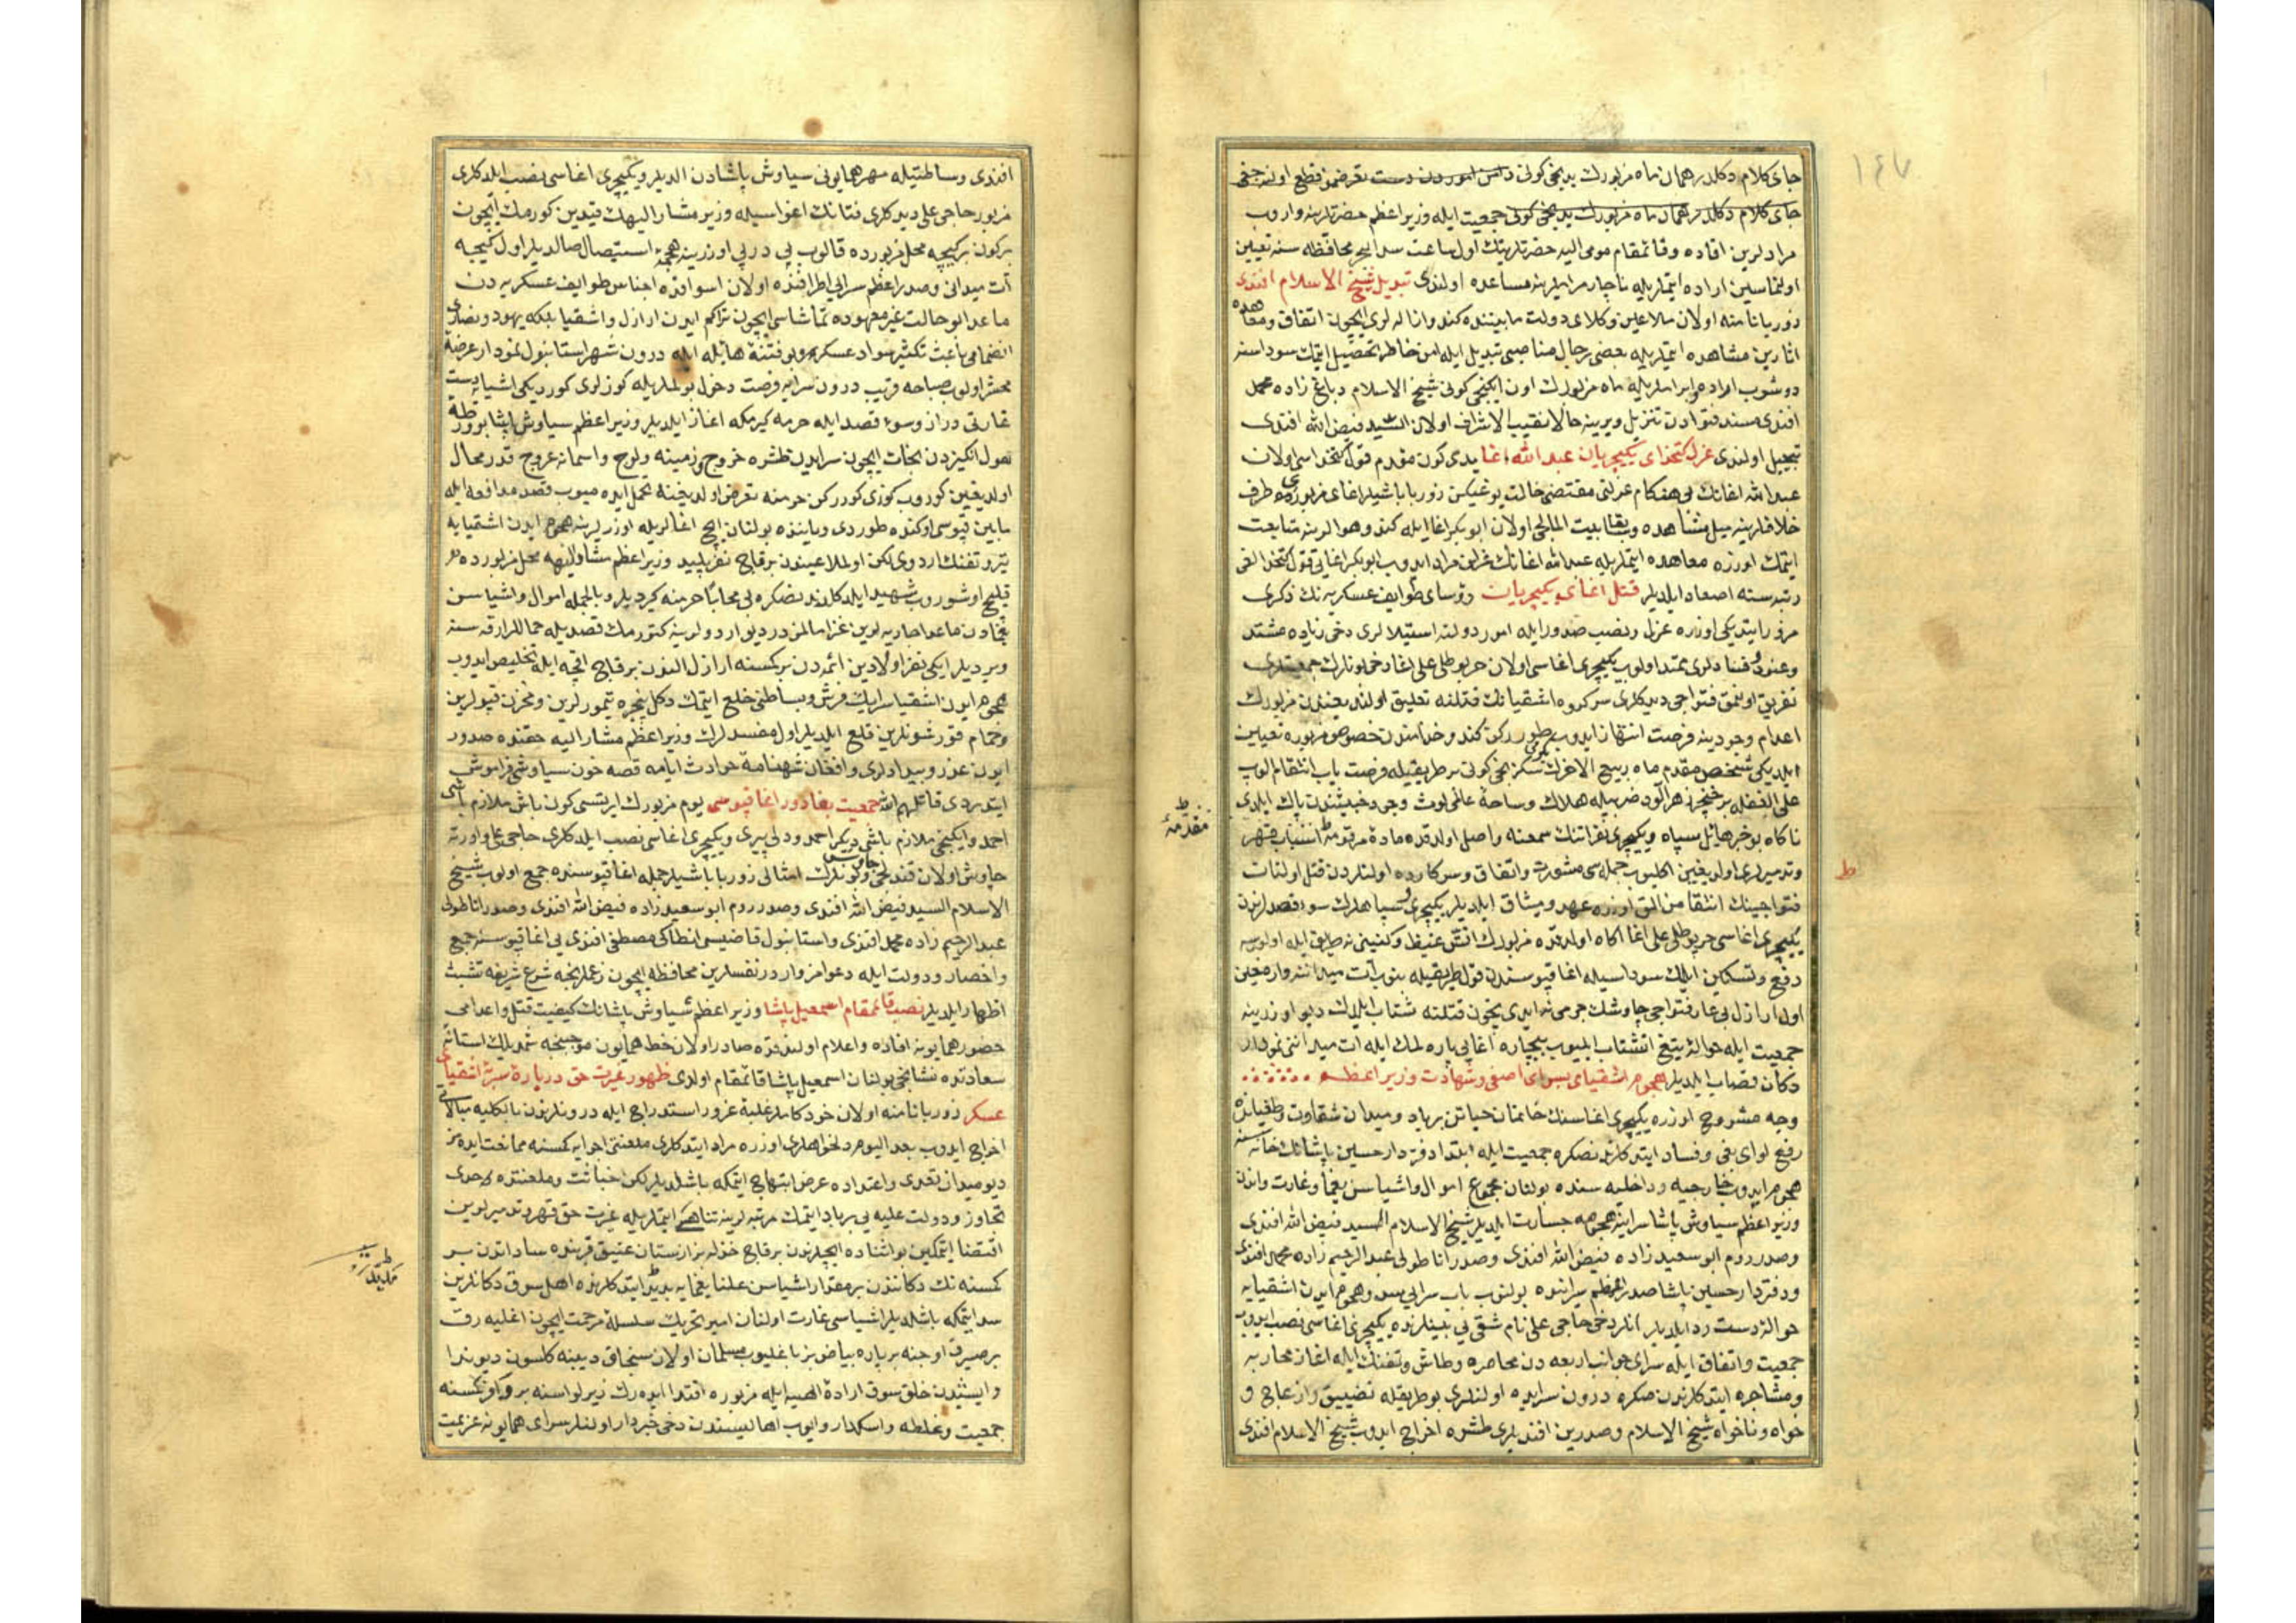 ١٤٧
جای کلام دکلدر همان ماه مزبورك یدنجی کونی
جای کلام دکلدر همان ماه مزبورك یدنجی کونی جمعیت ایله وزیر اعظم حضرتلرینه واروب
مرادلرین افاده وقائمقام مومی الیه حضرتلرینك اول ساعت سد البحر محافظه سنه تعیین
اولنماسین اراده ایتملریله ناچار مرامرینه مساعده اولندی تبدیل شیخ الاسلام افندی
زوربا نامنه اولان ملاعین وکلای دولت مابیننده کندو ازاله لری ایچون اتفاق ومعاهده
اثارین مشاهده ایتملریله بعضی رجال مناصبی تبدیل ایله امن خاطر تحصیل ایتمك سوداسنه
دوشوب ابرام لریله ماه مزبورك اون ایکنجی کونی شیخ الاسلام دباغ زاده محمد
افندی مسند فتوادن تنزیل ویرینه حالا نقیب الاشراف اولان السید فیض الله افندی
تبجیل اولندی عزل کتخدای یکیچریان عبد الله اغا یدی کون مقدم قول کتخداسی اولان
عبد الله اغانك بی هنکام عزلنی مقتضی حالت یوغیکن زوربا باشیلر اغای مزبورده طرف
خلافلرینه میل مشاهده وبقتابیت المالجی اولان ابو بکر اغا ایله کندو هوالرینه متابعت
ایتمك اوزره معاهده ایتملریله عبد الله اغانك عزلین مراد ایدوب ابو بکر اغایی قول کتخدالغی
رتبه سنه اصعاد ایلدیلر قتل اغای یکیچریان رؤسای طوایف عسکریه نك ذکری
مرور ایتدیکی اوزره عزل ونصب صدور ایله امور دولته استیلالری دخی زیاده مشتد
وعنود وفسادلری ممتد اولوب یکیچری اغاسی اولان حربوطلی علی اغا دخی بونلرك جمعیتلری
تفریق اولنمق فتواجی دیدکلری سرکروه اشقیانك قتلنه تعلیق اولندیغندن مزبورك
اعدام وجودینه فرصت انتهاز ایدوب طورركن کندو خدامندن خصوص مزبوره تعیین
ایلدیکی شخص مقدم ماه ربیع الاخرك سکزنجی کونی بر طریقیله فرصت یاب انتقام اولوب
علی الغفله بر خنجر زهر الود ضربیله هلاك وساحهٔ عالمی لوث وجود خبیثندن پاك ایلدی
ناکاه بو خبر هائل سپاه ویکیچری نفراتنك سمعنه واصل اولدقده مادهٔ مرقومه انتساب قهر
وتدمیرلری اولدیغین اکلیوب جمله سی مشورت واتفاق وسرکارده اولنلردن قتل اولنان
فتواجینك انتقامن المق اوزره عهد ومیثاق ایلدیلر یکیچری وسپاهلرك سوء قصدلرندن
یکیچری اغاسی حربوطلی علی اغا اکاه اولدقده مزبورك اتش غیظ وکینینی نه طریق ایله اولورسه
دفع وتسکین ایلمك سوداسیله اغا قپوسندن قول طریقیله بنوب آت میداننه وارمغین
اول اراذل بی عار فتواجی چاوشك جرمی نه ایدی یچون قتلنه شتاب ایلدك دیو اوزرینه
جمعیت ایله حوالهٔ تیغ انتشتاب ایلیوب بیچاره اغایی پاره لمك ایله ات میداننی نمودار
دکان قصاب ایلدیلر هجوم اشقیای بسرای اصفی وشهادت وزیر اعظم
وجه مشروح اوزره یکیچری اغاسنك خانمان حیاتن برباد ومیدان شقاوت وطغیانده
رفع لوای بغی وفساد ایتدکلرندنصکره جمعیت ایله ابتدا دفتردار حسین پاشانك خانه سنه
هجوم ایدوب خارجیه وداخلیه سنده بولنان مجموع اموال واشیاسن یغما وغارت واندن
وزیر اعظم سیاوش پاشا سراینه هجومه جسارت ایلدیلر شیخ الاسلام السید فیض الله افندی
وصدر روم ابو سعید زاده فیض الله افندی وصدر اناطولی عبد الرحیم زاده محمد افندی
ودفتردار حسین پاشا صدر اعظم سراینده بولنوب باب سرایی سد وهجوم ایدن اشقیایه
حوالهٔ دست رد ایلدیلر انلر دخی حاجی علی نام شقی یی بینلرنده یکیچری اغاسی نصب ایدوب
جمعیت واتفاق ایله سرای جوانب اربعه دن محاصره وطاش وتفنك ایله اغاز محاربه
ومشاجره ایتدکلرندن صکره درون سرایده اولنلری بو طریقله تضییق وازعاج و
خواه وناخواه شیخ الاسلام وصدرین افندیلری طشره اخراج ایدوب شیخ الاسلام افندی
ط
مقدمهٔ
افندی وساطتیله مهر همایونی سیاوش پاشادن الدیلر ویکیچری اغاسی نصب ایلدکلری
مزبور حاجی علی دیدکلری فتانك اغواسیله وزیر مشار الیهك قیدین کورمك ایچون
بر کون بر کیجه محل مزبورده قالوب پی در پی اوزرینه هجمهٔ استیصال صالدیلر اول کیجه
آت میدانی وصدر اعظم سرایی اطرافنده اولان اسواقده اجناس طوایف عسکریه دن
ماعدا بو حالت غیر معهوده تماشاسی ایچون تراکم ایدن اراذل واشقیا بلکه یهود ونصاری
انضمامی باعث تکثیر سواد عسکر وبو فتنهٔ هائله ایله درون شهر استانبول نمودار عرصهٔ
محشر اولوب صباحه قریب درون سرایه فرصت دخول بولملریله کوزلری کوردیکی اشیایه دست
غارتی دراز وسوء قصد ایله حرمه کیرمکه اغاز ایلدیلر وزیر اعظم سیاوش پاشا بو ورطهٔ
هول انکیزدن نجات ایچون سرایدن طشره خروج وزمینه ولوج واسمانه عروج قدر محال
اولدیغین کوروب کوزی کوررکن حرمنه تعرض اولندیغینه تحمل ایده میوب قصد مدافعه ایله
مابین قپوسی اوکنده طوردی ویاننده بولنان ایچ اغالریله اوزرلرینه هجوم ایدن اشقیایه
تیر وتفنك اردوی لکن اول ملاعیندن بر قاچ نفر پلید وزیر اعظم مشار الیهه محل مزبورده
قلیج اوشوروب شهید ایلدکلرندنصکره بی محابا حرمنه کیردیلر وبالجمله اموال واشیاسن
یغمادن ماعدا جاریه لرین
ویردیلر ایکی نفر اولادین ائمه دن بر کمسنه اراذل الندن بر قاچ اقچه ایله تخلیص ایدوب
هجوم ایدن اشقیا سرایك فرش وبساطنی خلع ایتمك دکل پنجره تیمورلرین ومخزن قپولرین
وحمام قورشونلرین قلع ایلدیلر اول مفسدلرك وزیر اعظم مشار الیه حقنده صدور
ایدن غدر وبیدادلری وافغان شهنامهٔ حوادث ایامه قصه خون سیاوشی فراموش
ایتدیردی قاتلهم الله جمعیت بغا در اغا قپوسی یوم مزبورك ایرتسی کون باش ملازم باشی
احمد وایکنجی ملازم باشی دیکر احمد ودلی پیری ویکیچری اغاسی نصب ایلدکلری حاجی علی واورته
چاوش اولان قندلجی وبونلرك امثالی زوربا باشیلر جمله اغا قپوسنده جمع اولوب شیخ
الاسلام السید فیض الله افندی وصدر روم ابو سعید زاده فیض الله افندی وصدر اناطولی
عبد الرحیم زاده محمد افندی واستانبول قاضیسی انطاکی مصطفی افندی یی اغا قپوسنه جمع
واحضار ودولت ایله دعوامز واردر نفسلرین محافظه ایچون زعملرنجه شرع شریفه تشبث
اظهار ایلدیلر نصب قائمقام اسمعیل پاشا وزیر اعظم سیاوش پاشانك کیفیت قتل واعدامی
حضور همایونه افاده واعلام اولندقده صادر اولان خط همایون موجبنجه شمدیلك استانهٔ
سعادتده نشانجی بولنان اسمعیل پاشا قائمقام اولدی ظهور غیرت حق دربارهٔ سرزنش اشقیای
عسکر زوربا نامنه اولان خودکاملر غلبهٔ غرور استدراج ایله درونلرندن بالکلیه مبالاتی
اخراج ایدوب بعد الیوم دلخواهلری اوزره مراد ایتدکلری ملعنتی اجرایه کمسنه ممانعت ایده مز
دیو میدان تعدی واعتداده عرض ابتهاج ایتمکه باشلدیلر لکن خباثت وملعنتده حدی
تجاوز ودولت علیه یی برباد ایتمك مرتبه لرینه تناهی ایتملریله غیرت حق قهر وتدمیرلرین
اقتضا ایتمکین بو اثناده ایچلرندن بر قاچ خذله بزازستان عتیق قربنده ساداتدن بر
کمسنه نك دکانندن بر مقدار اشیاسن علنا یغمایه بدید ایتدکلرنده اهل سوق دکانلرین
سد ایتمکه باشلدیلر اشیاسی غارت اولنان امیر تحریك سلسلهٔ مرحمت ایچون اغلیه رق
بر صیرق اوجنه بر پاره بیاض بز باغلیوب مسلمان اولان سنجاق دیبنه کلسون دیو ندا
وایشیدن خلق سوق ارادهٔ الهیه ایله مزبوره اقتدا ایده رك زیر لواسنه بر وافر کمسنه
جمعیت وغلطه واسکدار وایوب اهالیسندن دخی خبردار اولنلر سرای همایونه عزیمت